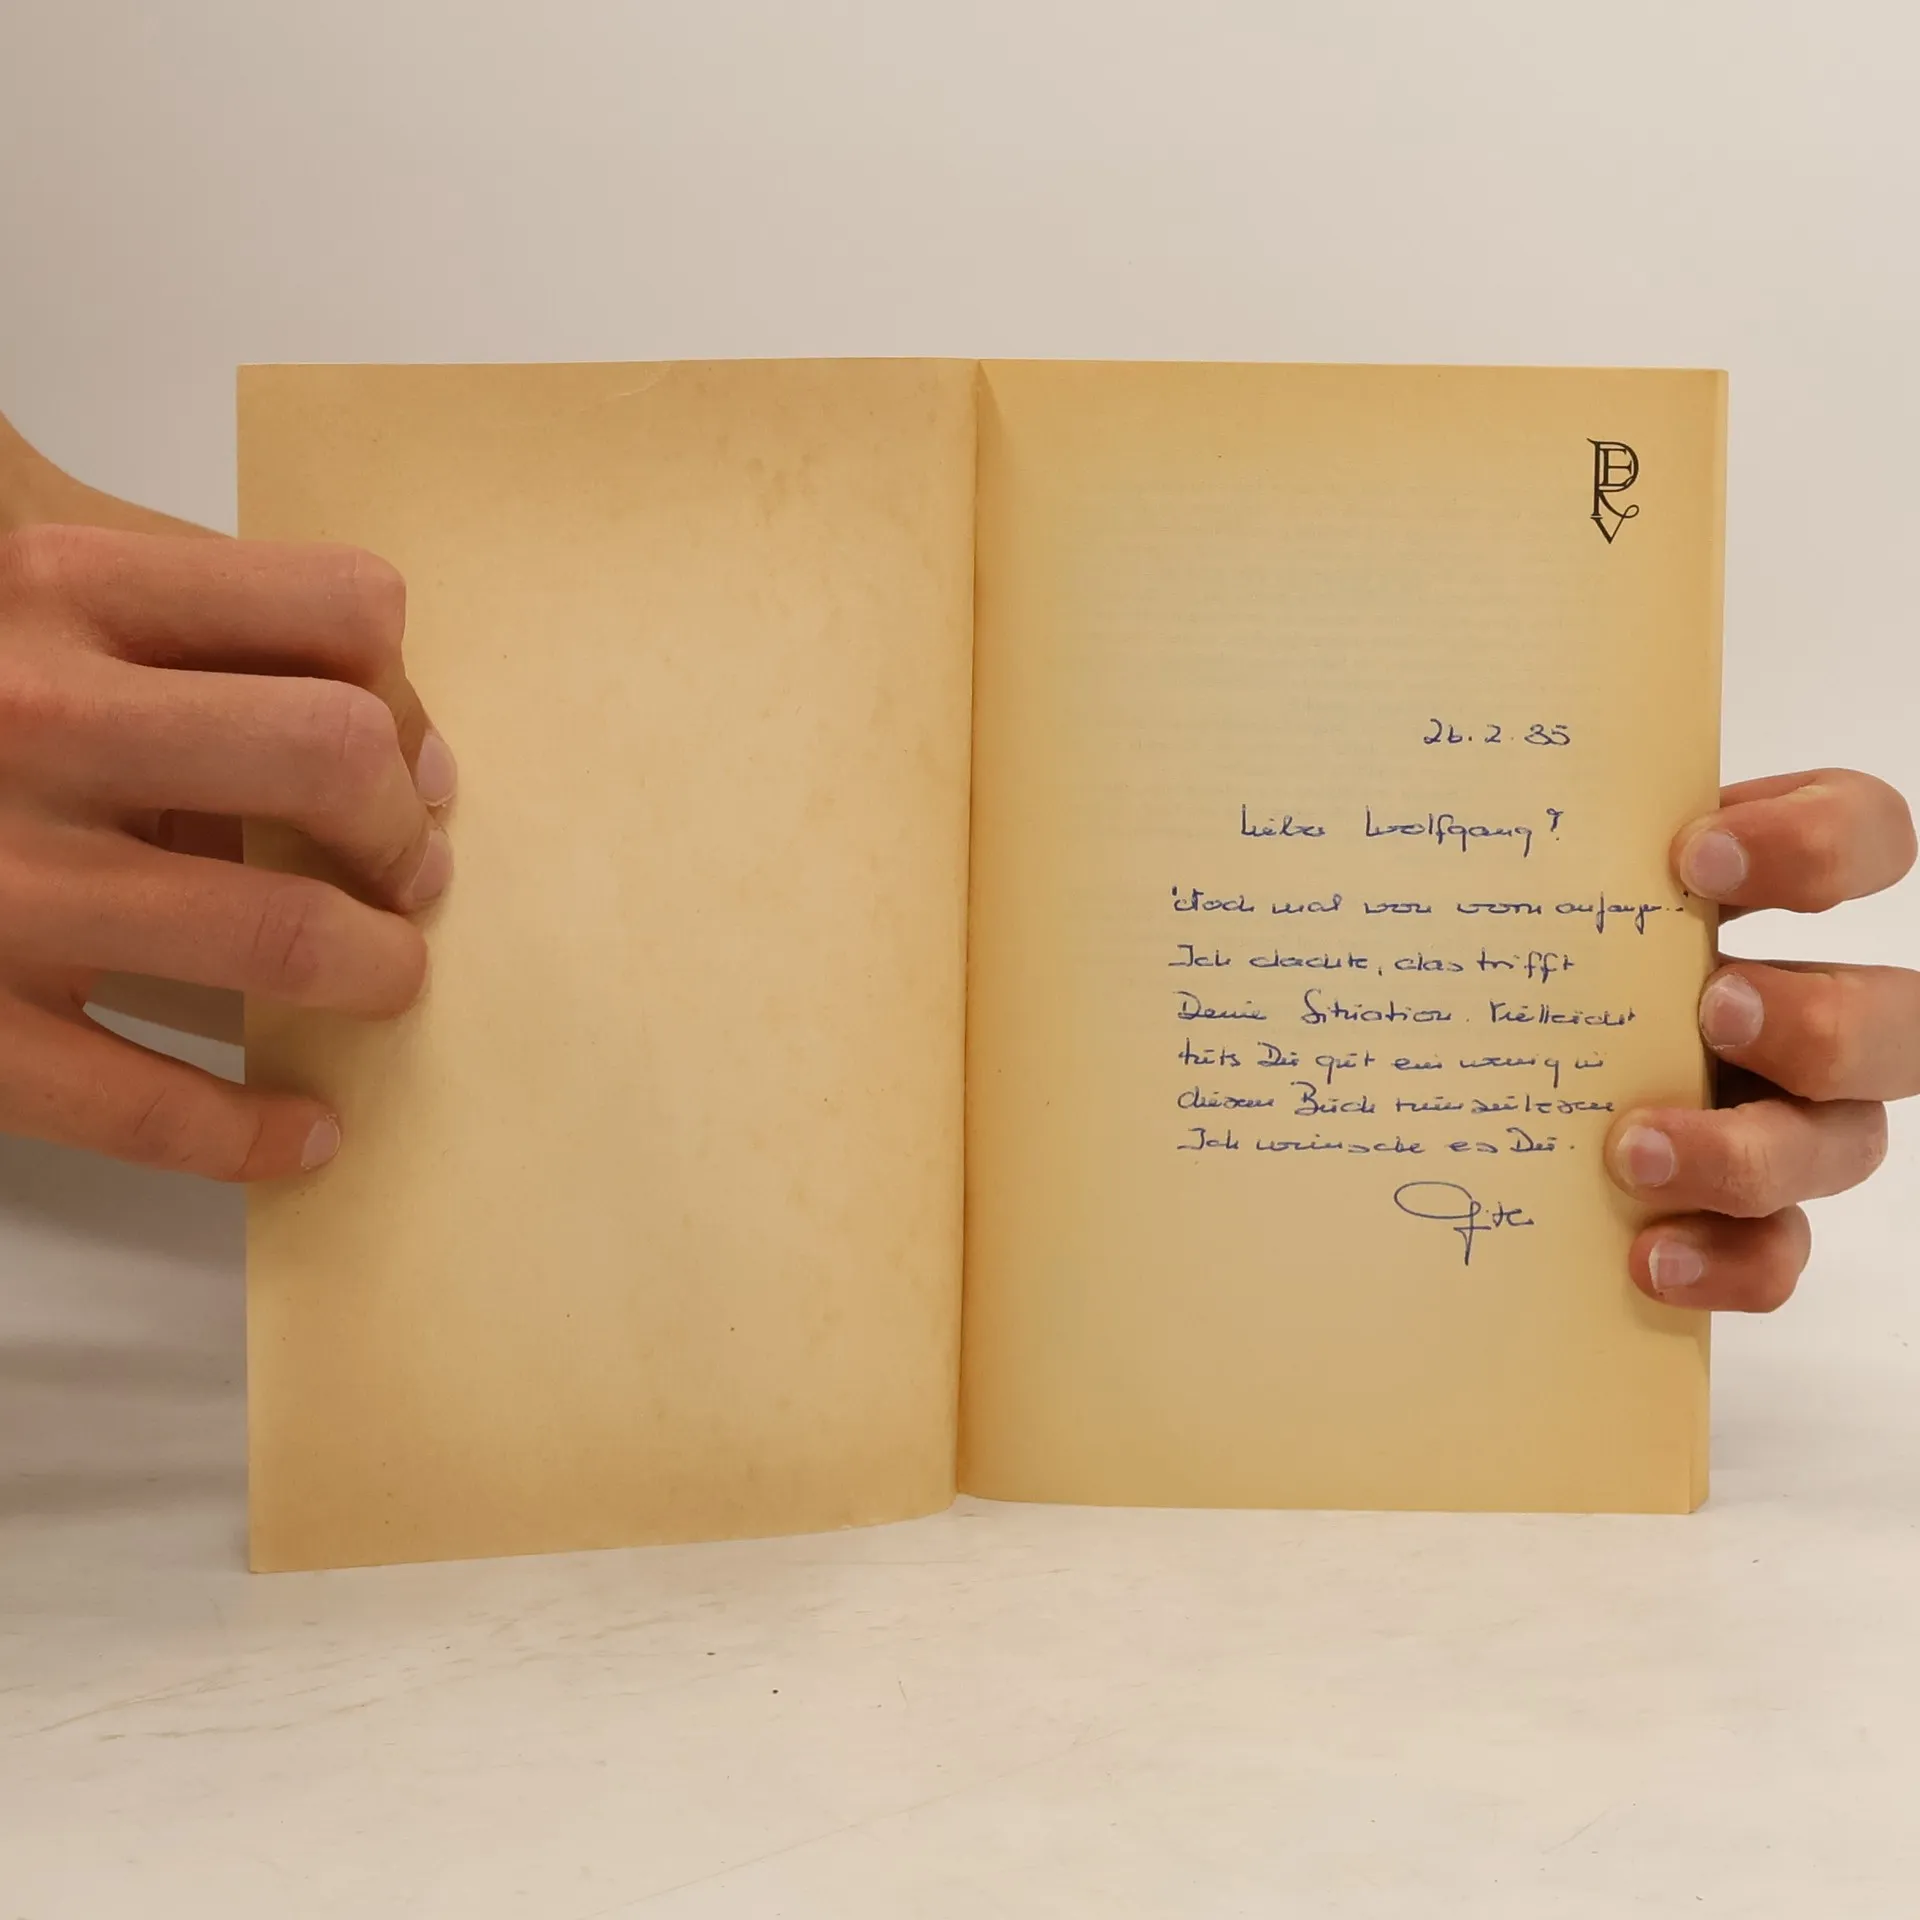 ERV
26.2.85
Lieber Wolfgang!
"Noch mal von vorn anfangen..."
Ich dachte, das trifft
Deine Situation. Vielleicht
tuts Dir gut ein wenig in
diesem Buch reinzulesen
Ich wünsche es Dir.